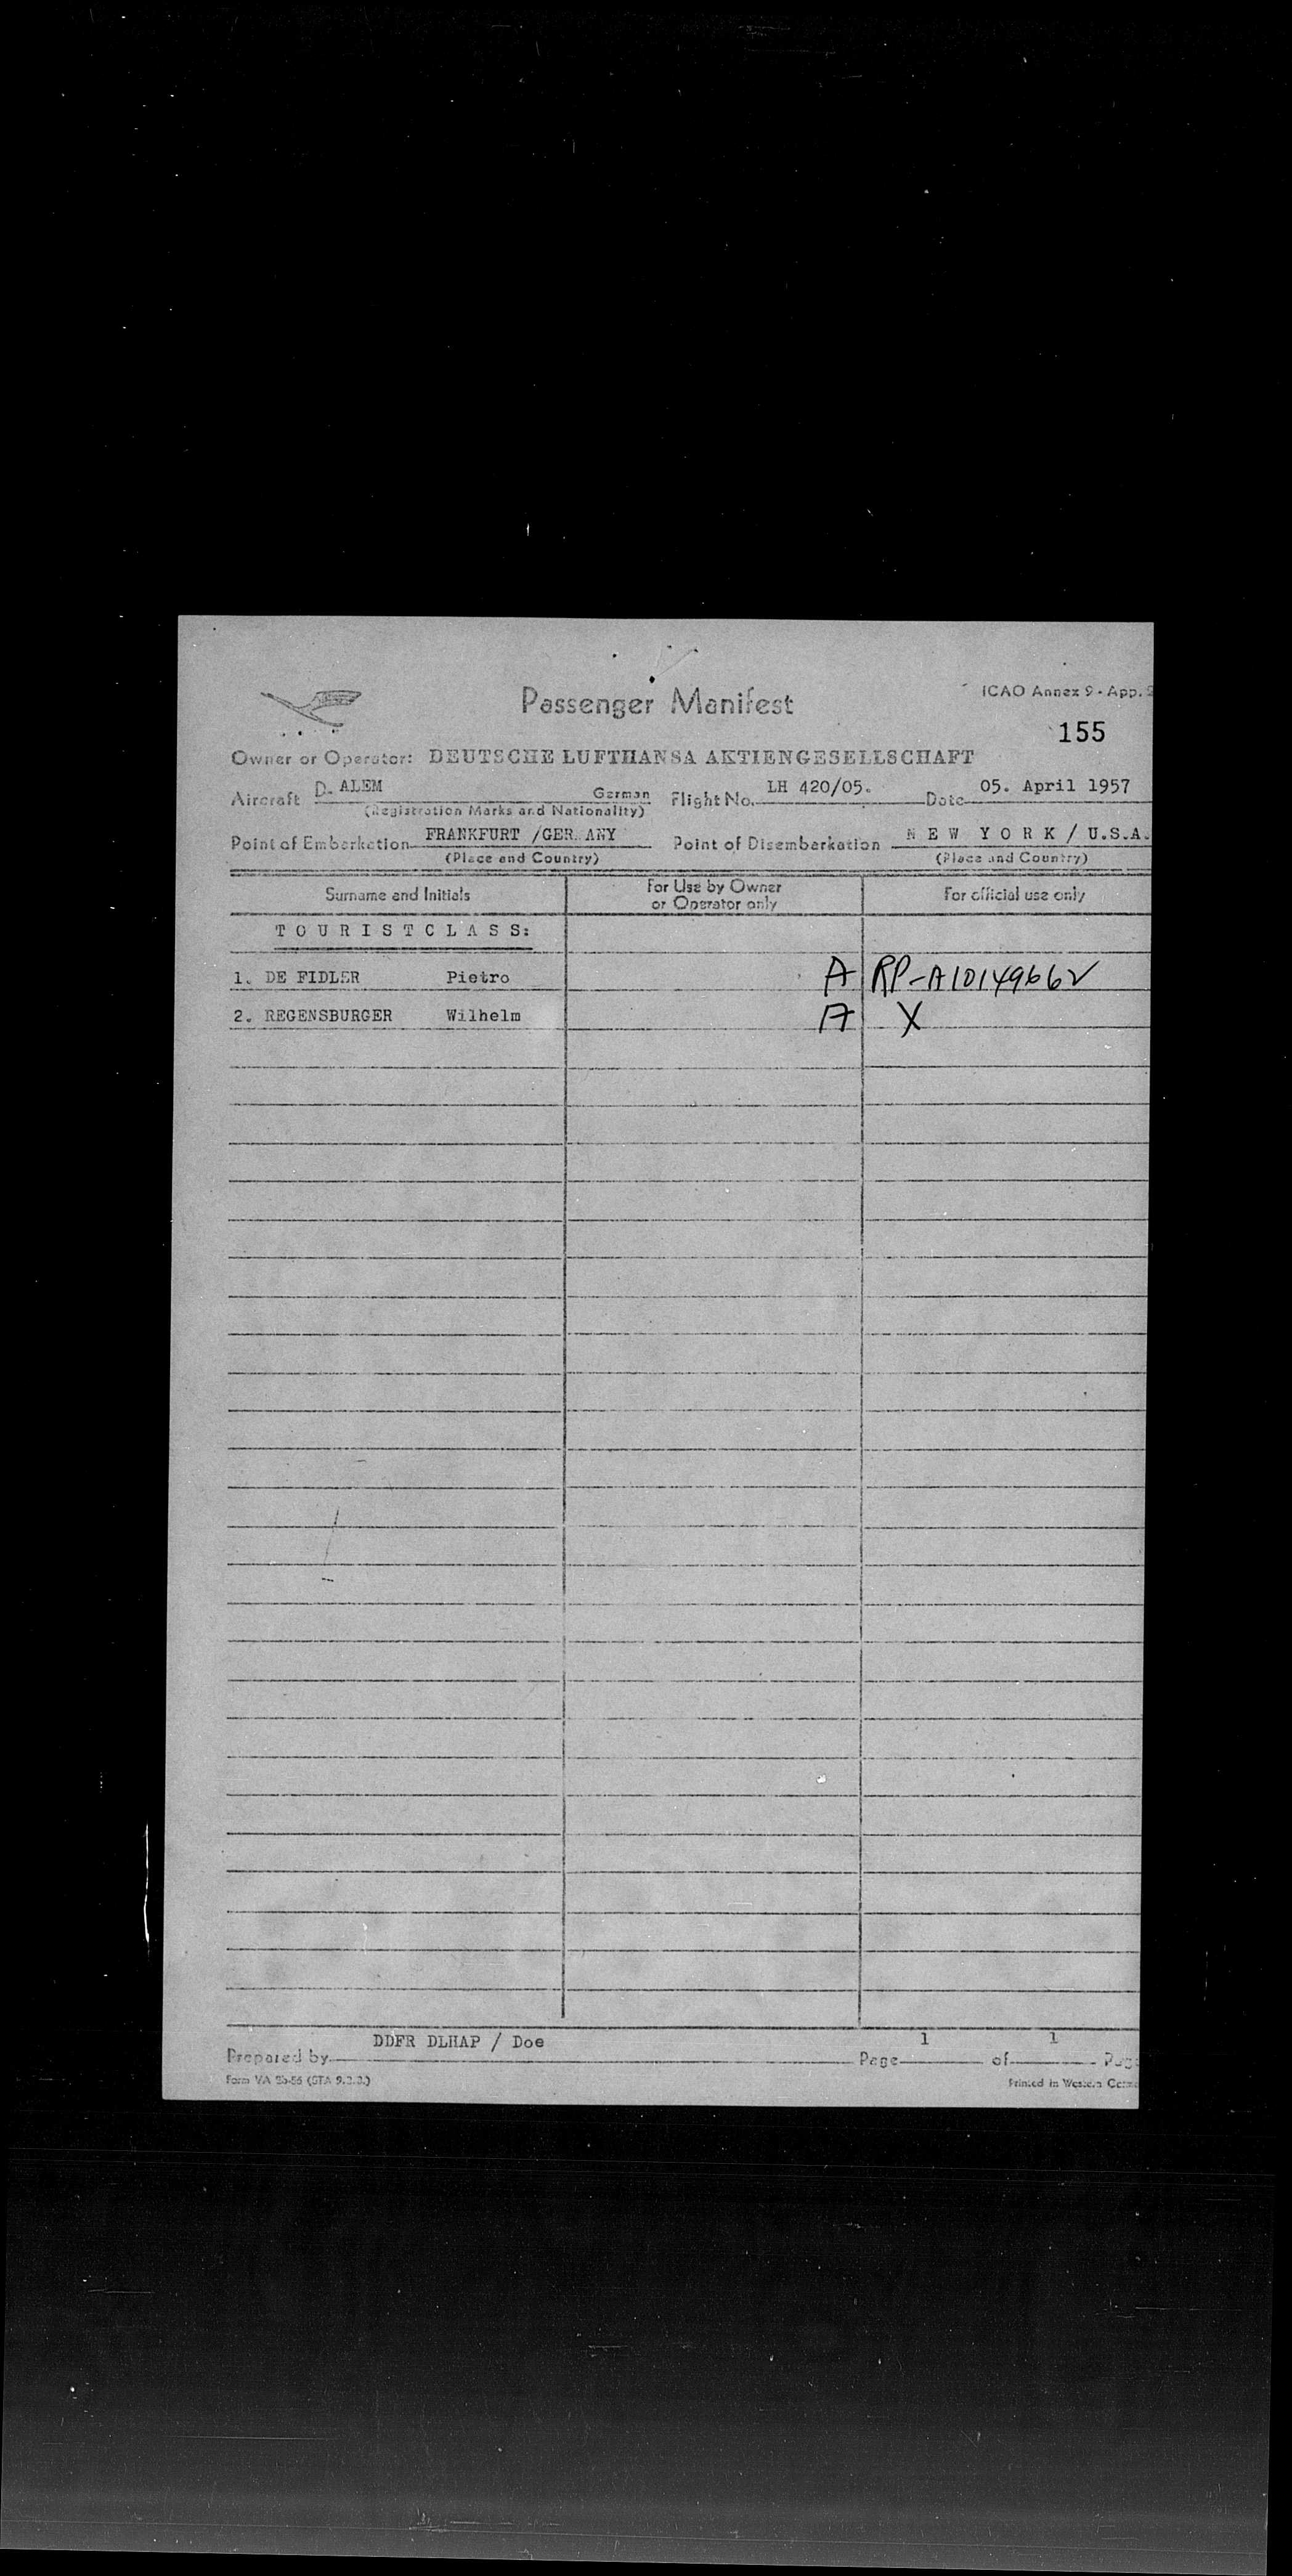 Passenger Manifest
ICAO Annex 9 - App. 2
155
Owner or Operator: DEUTSCHE LUFTHANSA AKTIENGESELLSCHAFT
Aircraft D. ALEM German Flight No. LH 420/05. Date 05. April 1957
(Registration Marks and Nationality)
Point of Embarkation FRANKFURT /GER ANY Point of Disembarkation N E W Y O R K / U.S.A.
(Place and Country) (Place and Country)
Surname and Initials For Use by Owner or Operator only For official use only
T O U R I S T C L A S S:
1. DE FIDLER Pietro A RP-A10149662
2. REGENSBURGER Wilhelm A X
DDFR DLHAP / Doe 1 1
Prepared by Page of Page
Form VA 2b-56 (STA 9.2.2.)
Printed in Western Germa